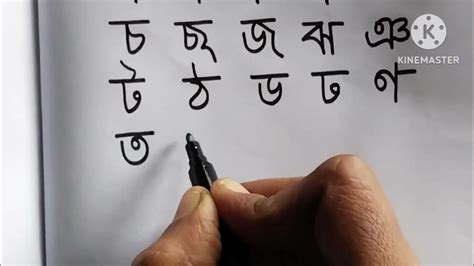 চ ছ জ ঝ ঞ
KINEMASTER
ট ঠ ড ঢ ণ
ত